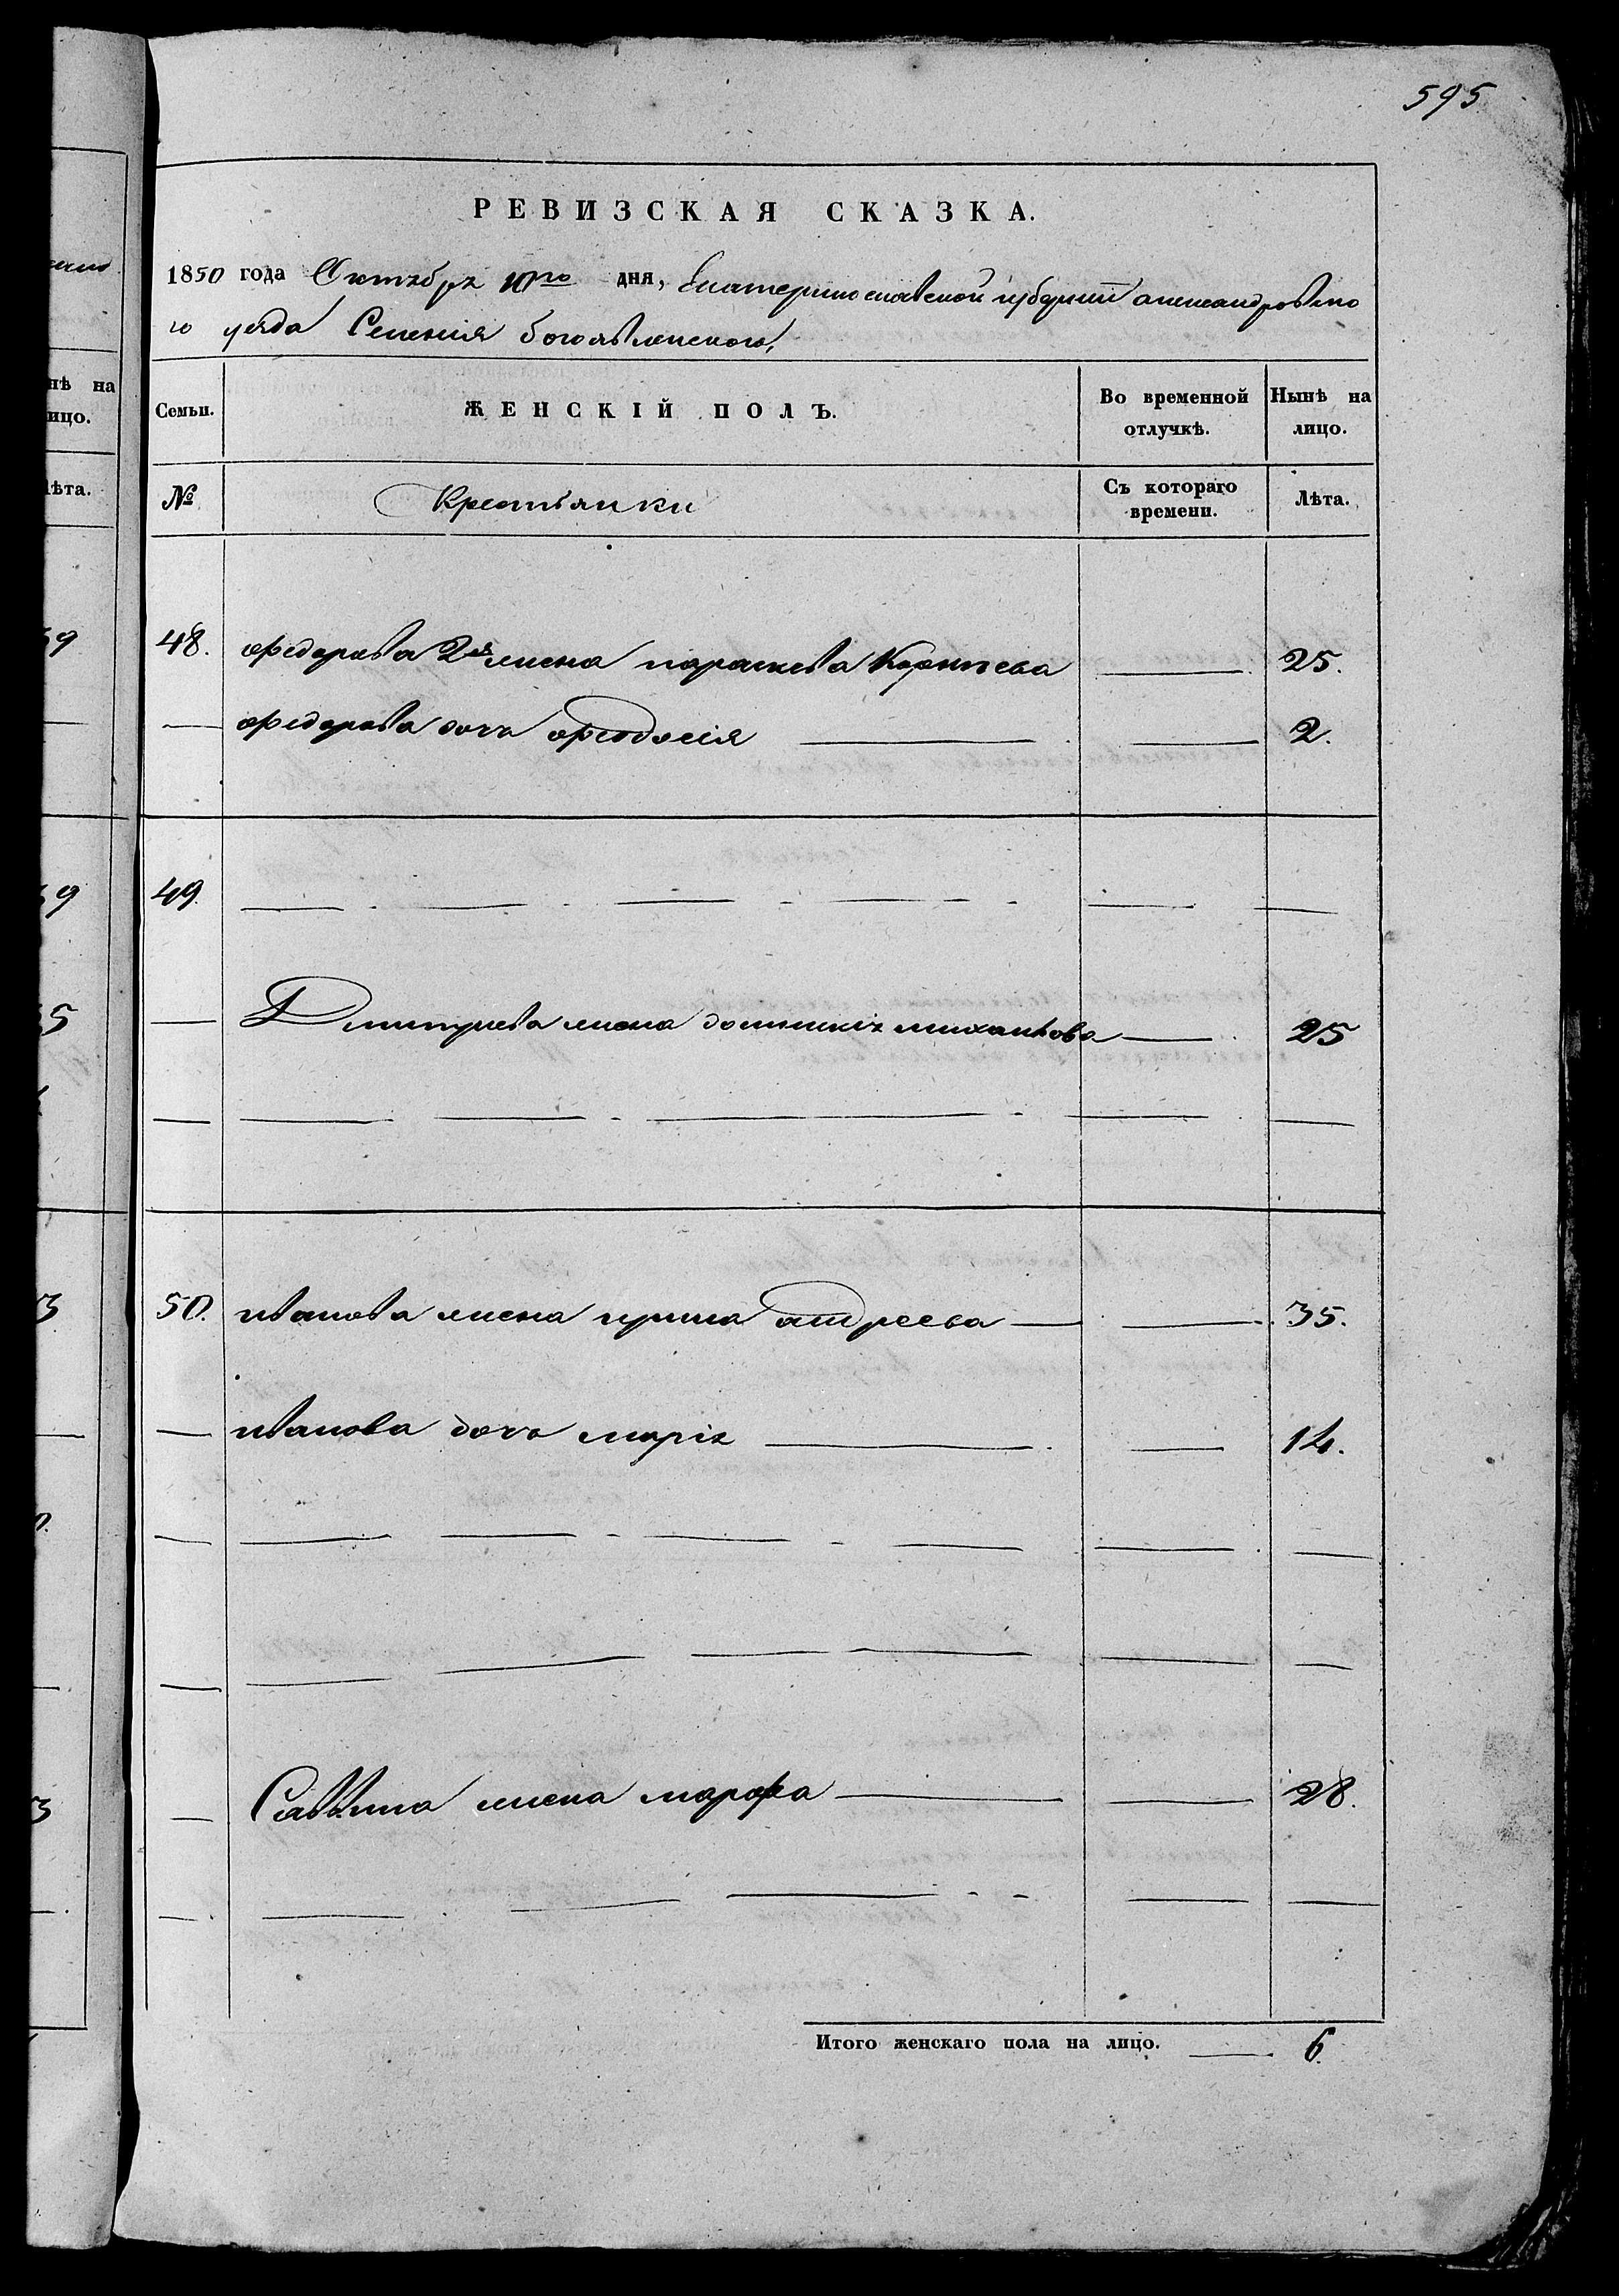 595
РЕВИЗСКАЯ СКАЗКА.
1850 года Октября 10го дня, Екатеринославской губернии александровско
го уезда Селения богоявленского,
Семьи. ЖЕНСКІЙ ПОЛЪ. Во временной отлучкѣ. Нынѣ на лицо.
№ Крестьянки Съ котораго времени. Лѣта.
48. федорова 2я жена параскева Корнѣева 25.
федорова дочь феодосія 2.
49.
Дмитриева жена домникія михайлова 25
50. иванова жена ирина андреева 35.
иванова дочь марія 14.
Саввина жена марфа 28.
Итого женскаго пола на лицо. 6.
нѣ на
ицо.
ѣта.
9
9
5
3
3